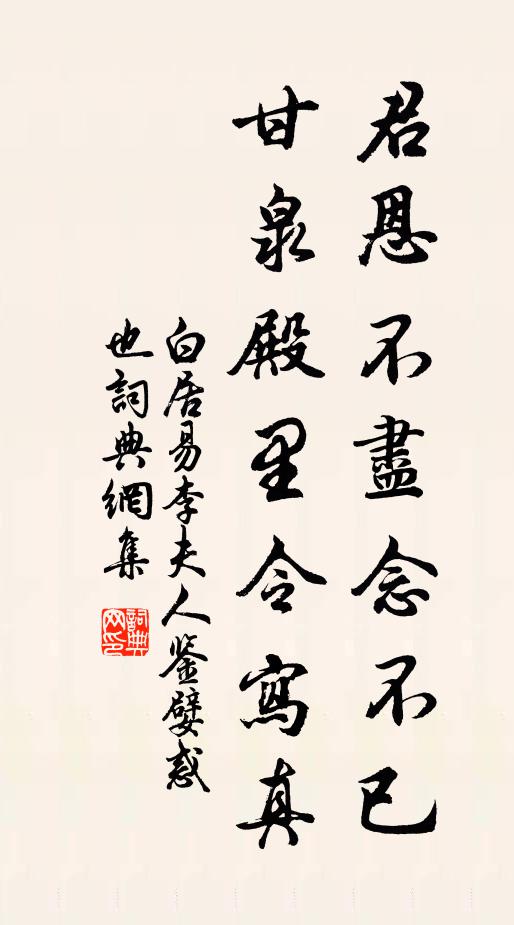 君恩不盡念不已
甘泉殿里令寫真
白居易李夫人鉴嬖惑
也詞典網集
詞典網印